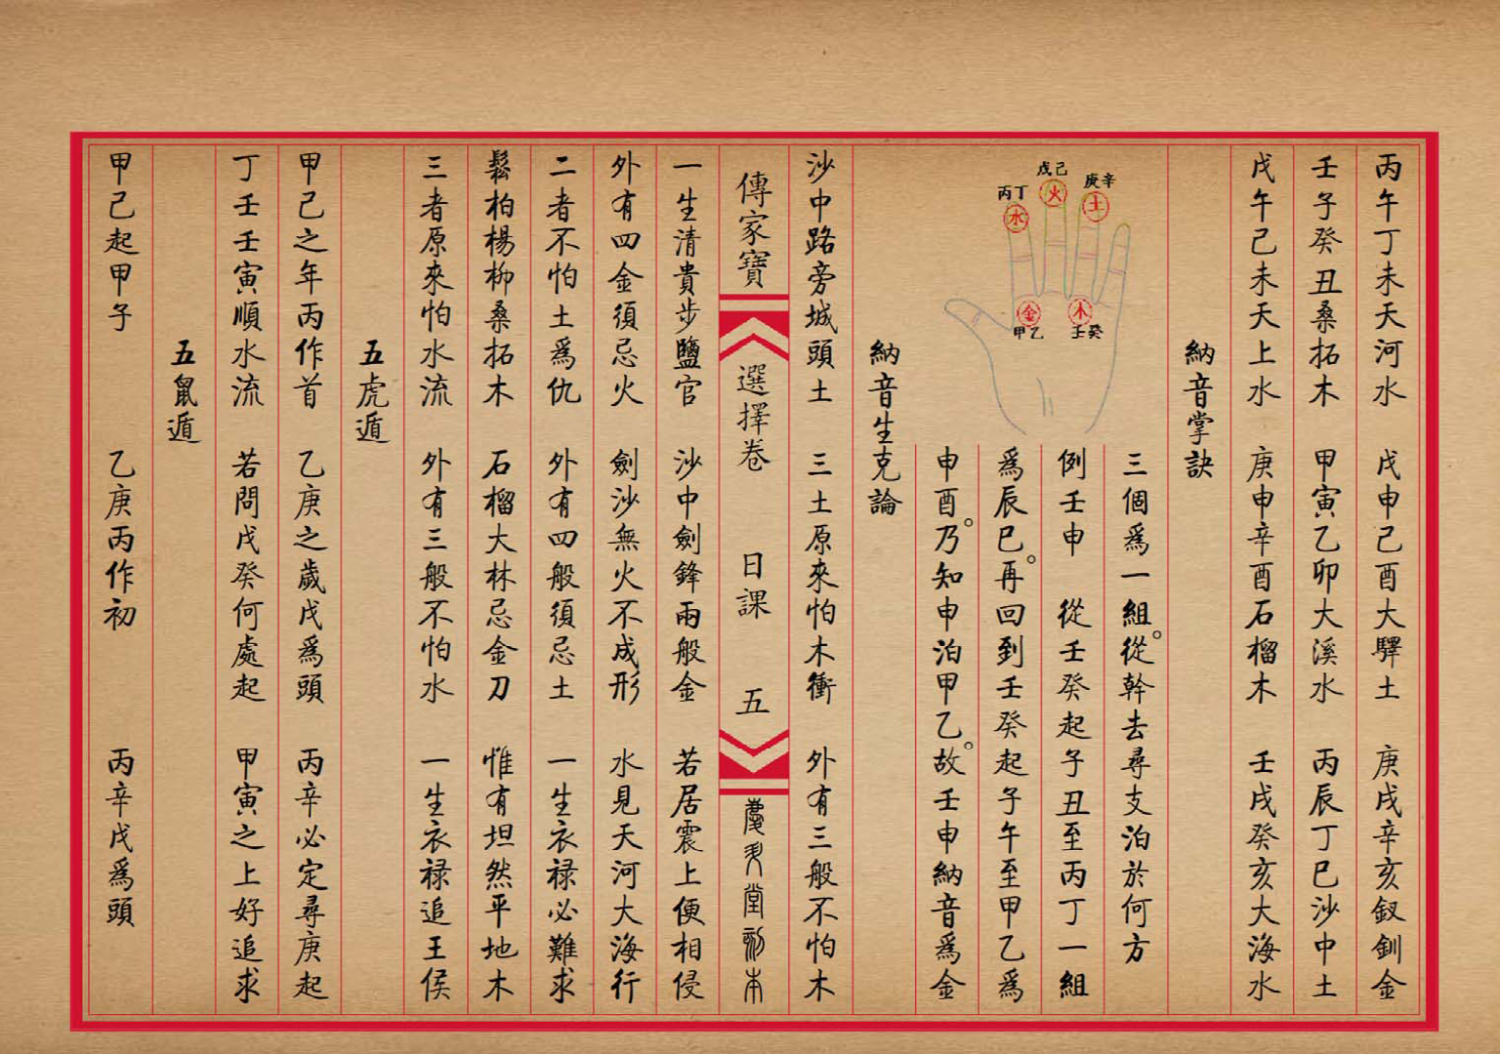 丙午丁未天河水　戊申己酉大驛土　庚戌辛亥釵釧金
壬子癸丑桑拓木　甲寅乙卯大溪水　丙辰丁巳沙中土
戊午己未天上水　庚申辛酉石榴木　壬戌癸亥大海水
納音掌訣
戊己
庚辛
丙丁
火
土
水
金
木
甲乙
壬癸
三個爲一組。從幹去尋支泊於何方
例壬申　從壬癸起子丑至丙丁一組
爲辰巳。再回到壬癸起子午至甲乙爲
申酉。乃知申泊甲乙。故壬申納音爲金
納音生克論
沙中路旁城頭土　三土原來怕木衝　外有三般不怕木
傳家寶　選擇卷　日課　五
堂　本
一生清貴步鹽官　沙中劍鋒兩般金　若居震上便相侵
外有四金須忌火　劍沙無火不成形　水見天河大海行
二者不怕土爲仇　外有四般須忌土　一生衣禄必難求
鬆柏楊柳桑拓木　石榴大林忌金刀　惟有坦然平地木
三者原來怕水流　外有三般不怕水　一生衣禄追王侯
五虎遁
甲己之年丙作首　乙庚之歲戊爲頭　丙辛必定尋庚起
丁壬壬寅順水流　若問戊癸何處起　甲寅之上好追求
五鼠遁
甲己起甲子　乙庚丙作初　丙辛戊爲頭